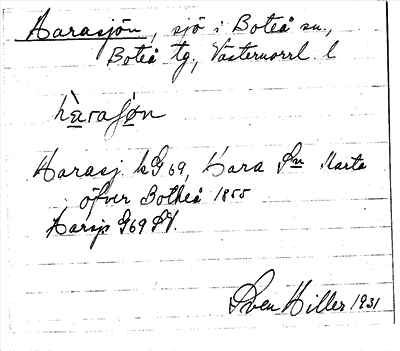 Harasjön, sjö i Boteå sn.,
Boteå tg, Västernorrl. l
hàrasǿn
Harasj. kG69, Hara Sn Karta
öfver Botheå 1855
Harsjö G69 SV.
Sven Hiller 1931